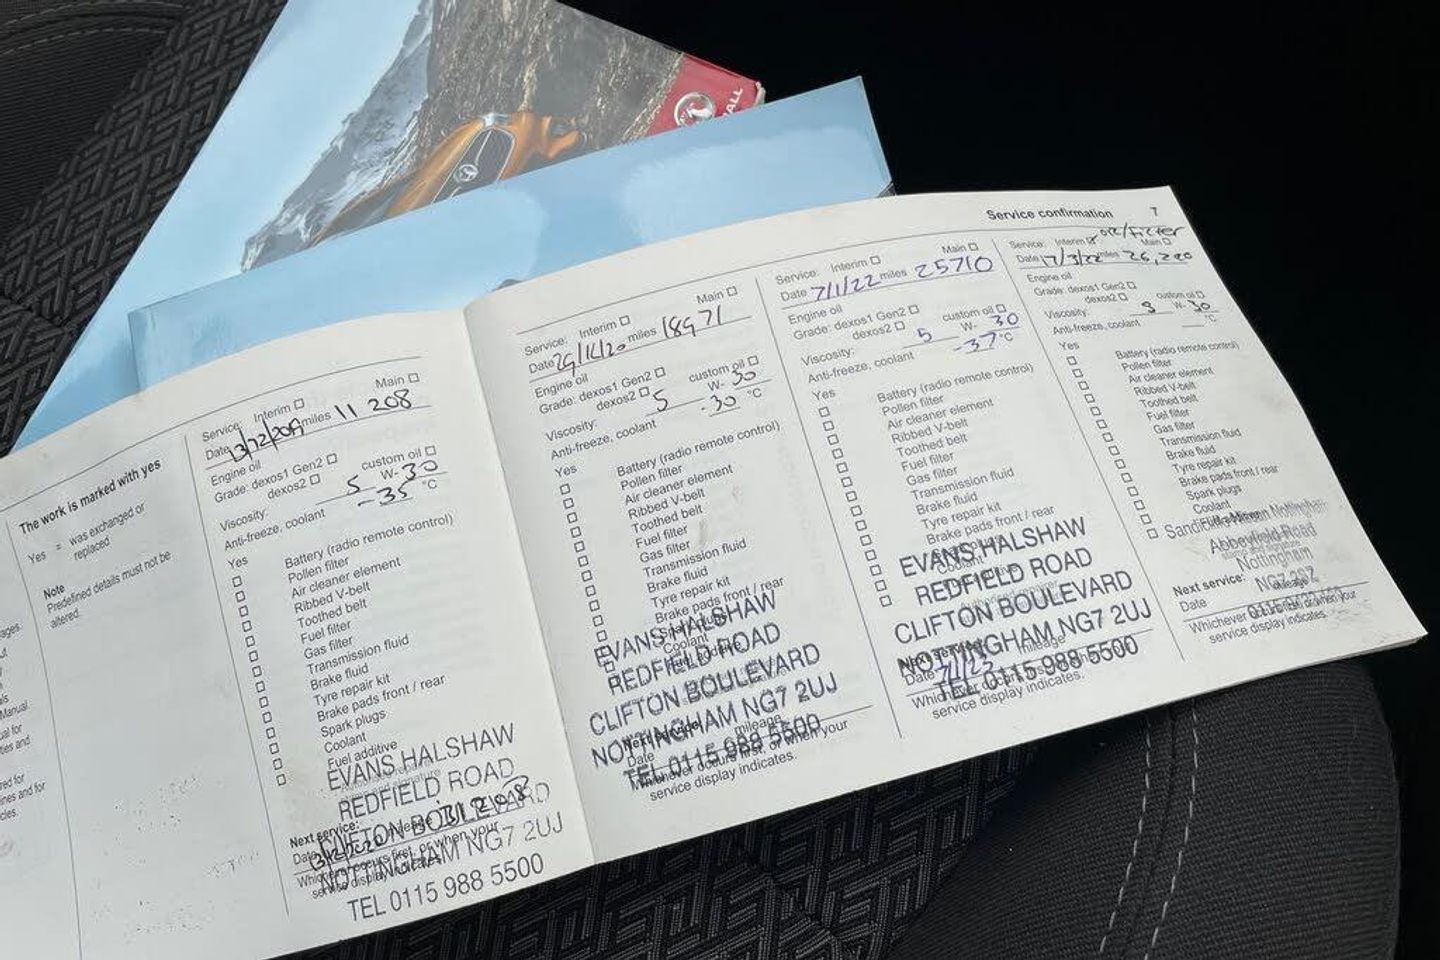 ALL
Service confirmation 7
ages.
Manual.
The work is marked with yes
Yes = was exchanged or
replaced
Note
Predefined details must not be
altered.
Service: Interim ☐ Main ☐
Date 13/12/2019 miles 11 208
Engine oil
Grade: dexos1 Gen2 ☐ custom oil ☐
dexos2 ☐
Viscosity: 5 W- 30
Anti-freeze, coolant -35 °C
Yes
☐ Battery (radio remote control)
☐ Pollen filter
☐ Air cleaner element
☐ Ribbed V-belt
☐ Toothed belt
☐ Fuel filter
☐ Gas filter
☐ Transmission fluid
☐ Brake fluid
☐ Tyre repair kit
☐ Brake pads front / rear
☐ Spark plugs
☐ Coolant
☐ Fuel additive
EVANS HALSHAW
REDFIELD ROAD
CLIFTON BOULEVARD
NOTTINGHAM NG7 2UJ
TEL 0115 988 5500
Next service:
Date 13/12/2020 mileage 31 208
Whichever occurs first, or when your
service display indicates.
Service: Interim ☐ Main ☐
Date miles 18971
Engine oil
Grade: dexos1 Gen2 ☐ custom oil ☐
dexos2 ☐
Viscosity: 5 W- 30
Anti-freeze, coolant -30 °C
Yes
☐ Battery (radio remote control)
☐ Pollen filter
☐ Air cleaner element
☐ Ribbed V-belt
☐ Toothed belt
☐ Fuel filter
☐ Gas filter
☐ Transmission fluid
☐ Brake fluid
☐ Tyre repair kit
☐ Brake pads front / rear
☐ Coolant
EVANS HALSHAW
REDFIELD ROAD
CLIFTON BOULEVARD
NOTTINGHAM NG7 2UJ
TEL 0115 988 5500
Next service:
Date mileage
Whichever occurs first, or when your
service display indicates.
Service: Interim ☐ Main ☐
Date 7/1/22 miles 25710
Engine oil
Grade: dexos1 Gen2 ☐ custom oil ☐
dexos2 ☐
Viscosity: 5 W- 30
Anti-freeze, coolant -37 °C
Yes
☐ Battery (radio remote control)
☐ Pollen filter
☐ Air cleaner element
☐ Ribbed V-belt
☐ Toothed belt
☐ Fuel filter
☐ Gas filter
☐ Transmission fluid
☐ Brake fluid
☐ Tyre repair kit
☐ Brake pads front / rear
☐ Coolant
EVANS HALSHAW
REDFIELD ROAD
CLIFTON BOULEVARD
NOTTINGHAM NG7 2UJ
TEL 0115 988 5500
Next service:
Date 7/1/23 mileage
Whichever occurs first, or when your
service display indicates.
oil/Filter
Service: Interim ☐ Main ☐
Date 17/3/22 miles 26,220
Engine oil
Grade: dexos1 Gen2 ☐ custom oil ☐
dexos2 ☐
Viscosity: 5 W- 30
Anti-freeze, coolant °C
Yes
☐ Battery (radio remote control)
☐ Pollen filter
☐ Air cleaner element
☐ Ribbed V-belt
☐ Toothed belt
☐ Fuel filter
☐ Gas filter
☐ Transmission fluid
☐ Brake fluid
☐ Tyre repair kit
☐ Brake pads front / rear
☐ Spark plugs
☐ Coolant
Nottingham
Abbeyfield Road
Nottingham
Next service:
Date mileage
Whichever occurs first, or when your
service display indicates.